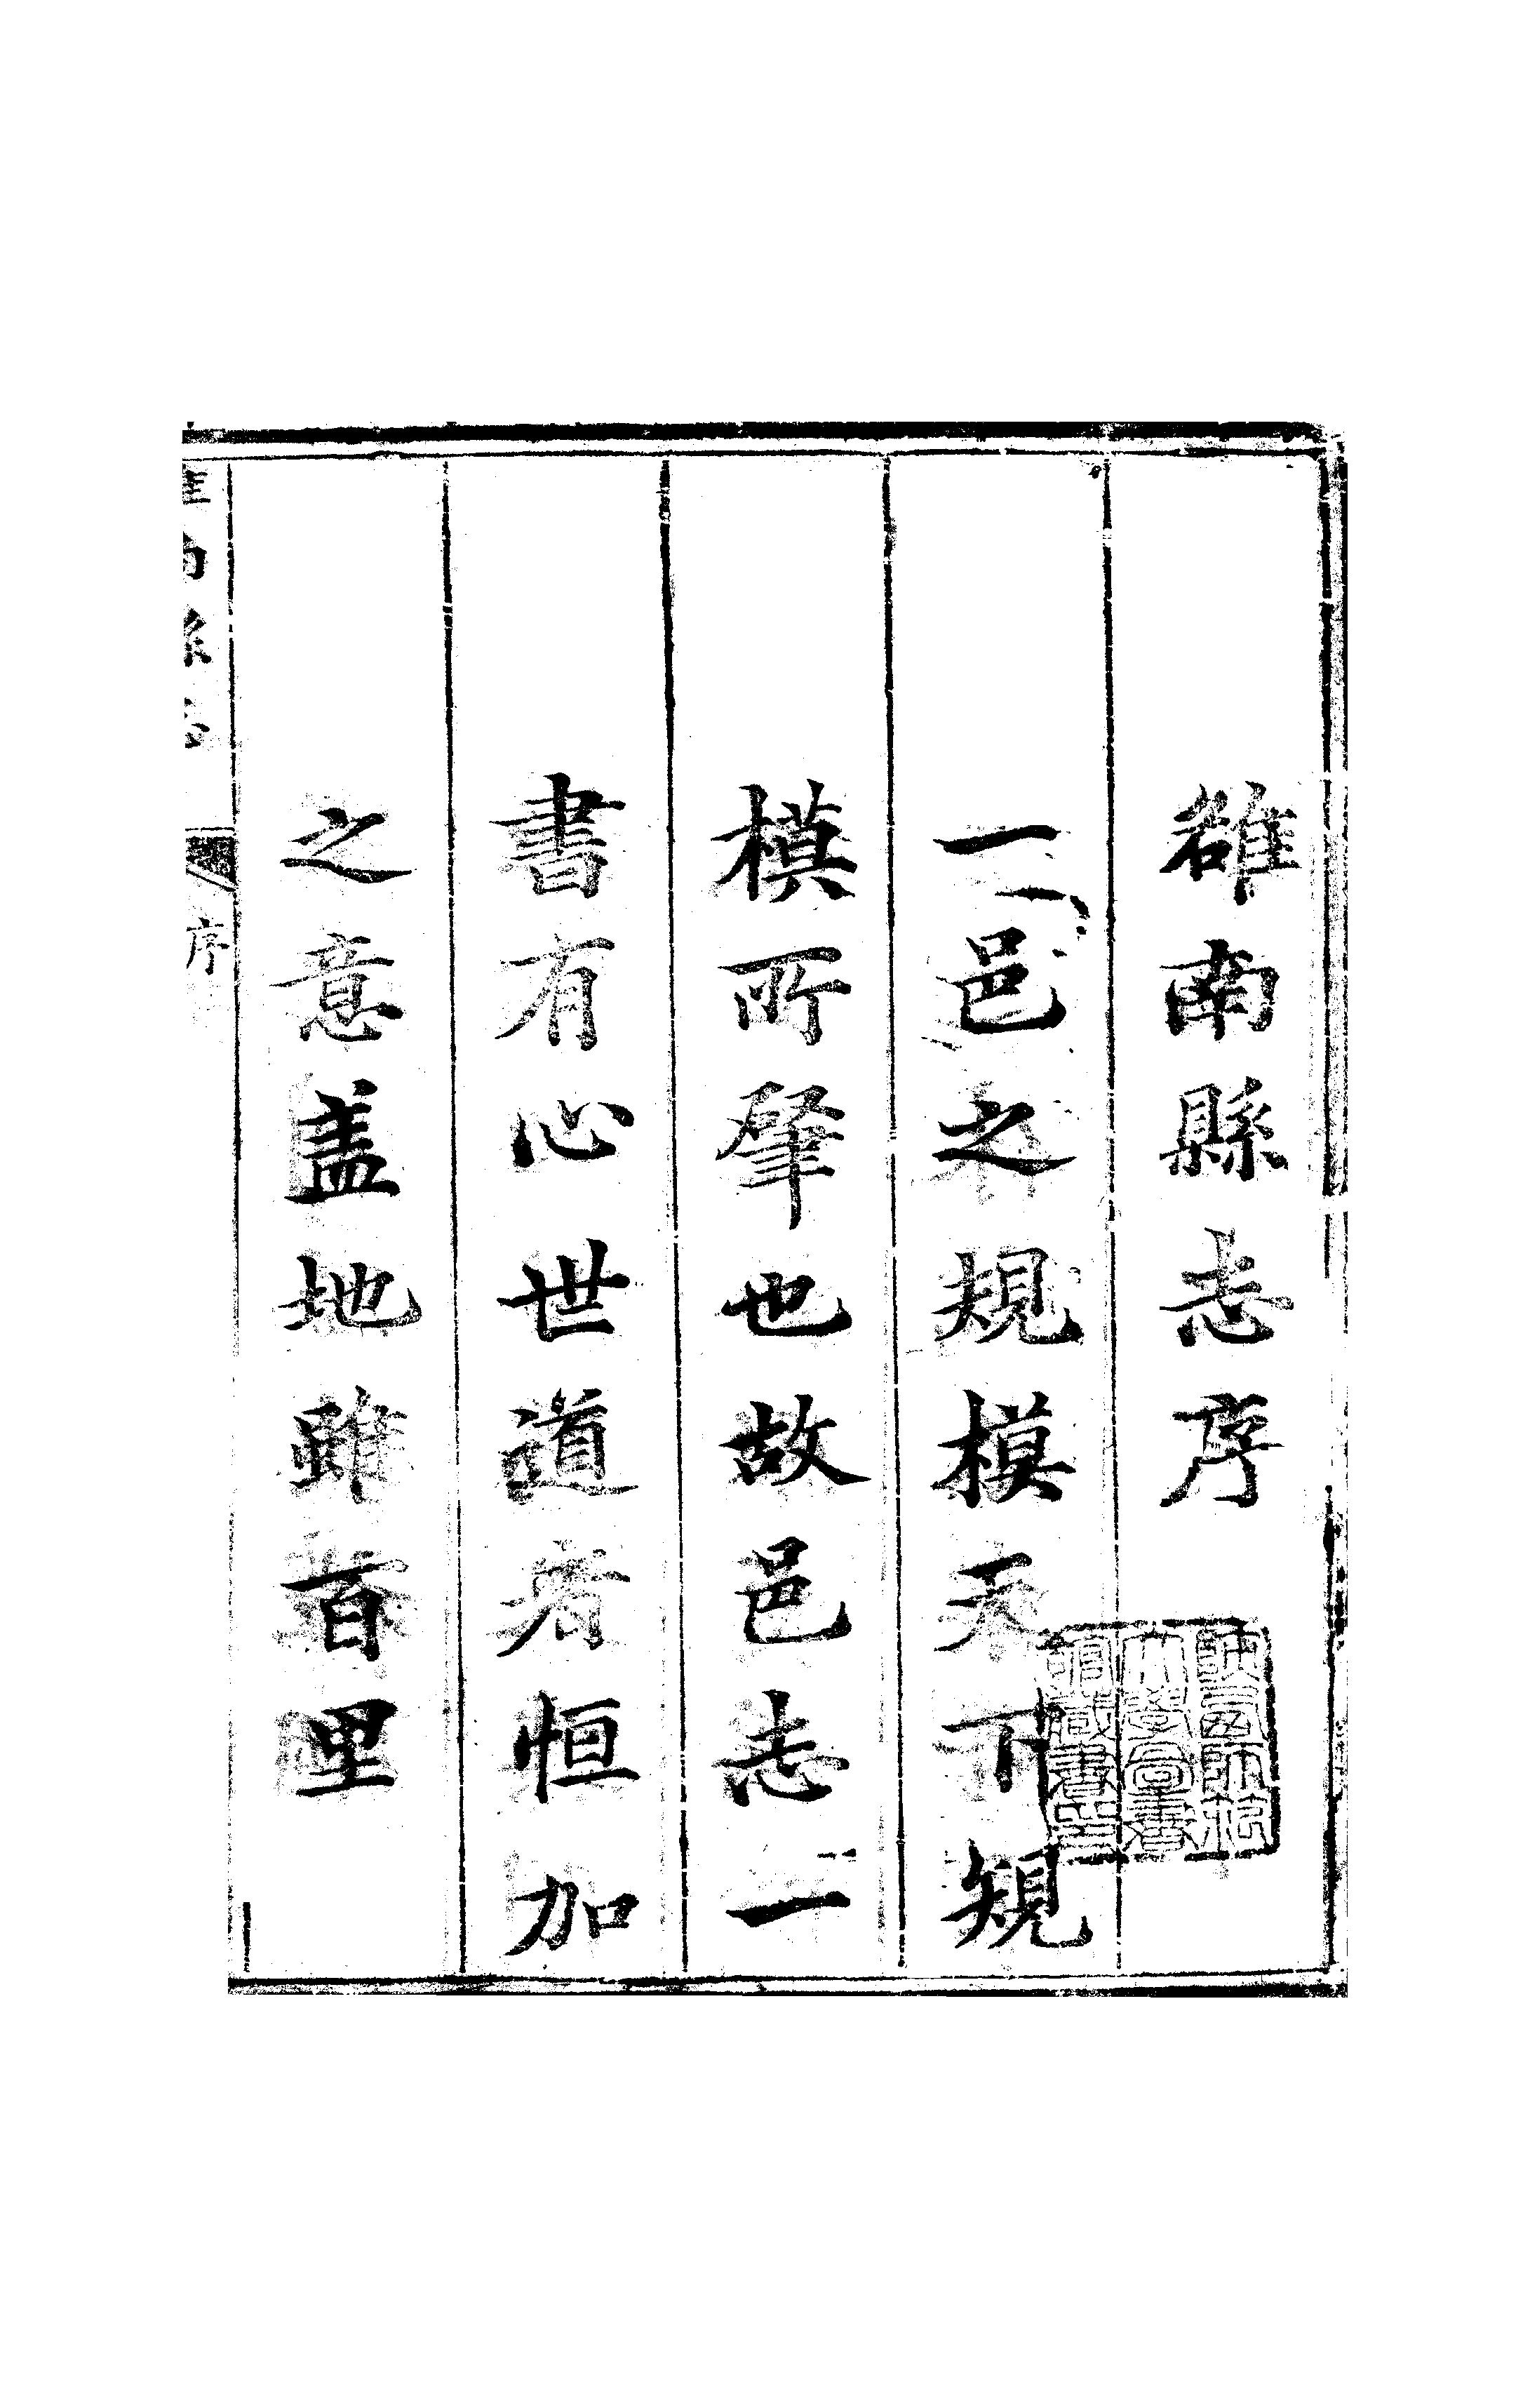 雒南縣志序
一邑之規模天下規
模所肇也故邑志一
書有心世道者恒加
之意盖地雖百里
序
陝西師範
大學圖書
館藏書